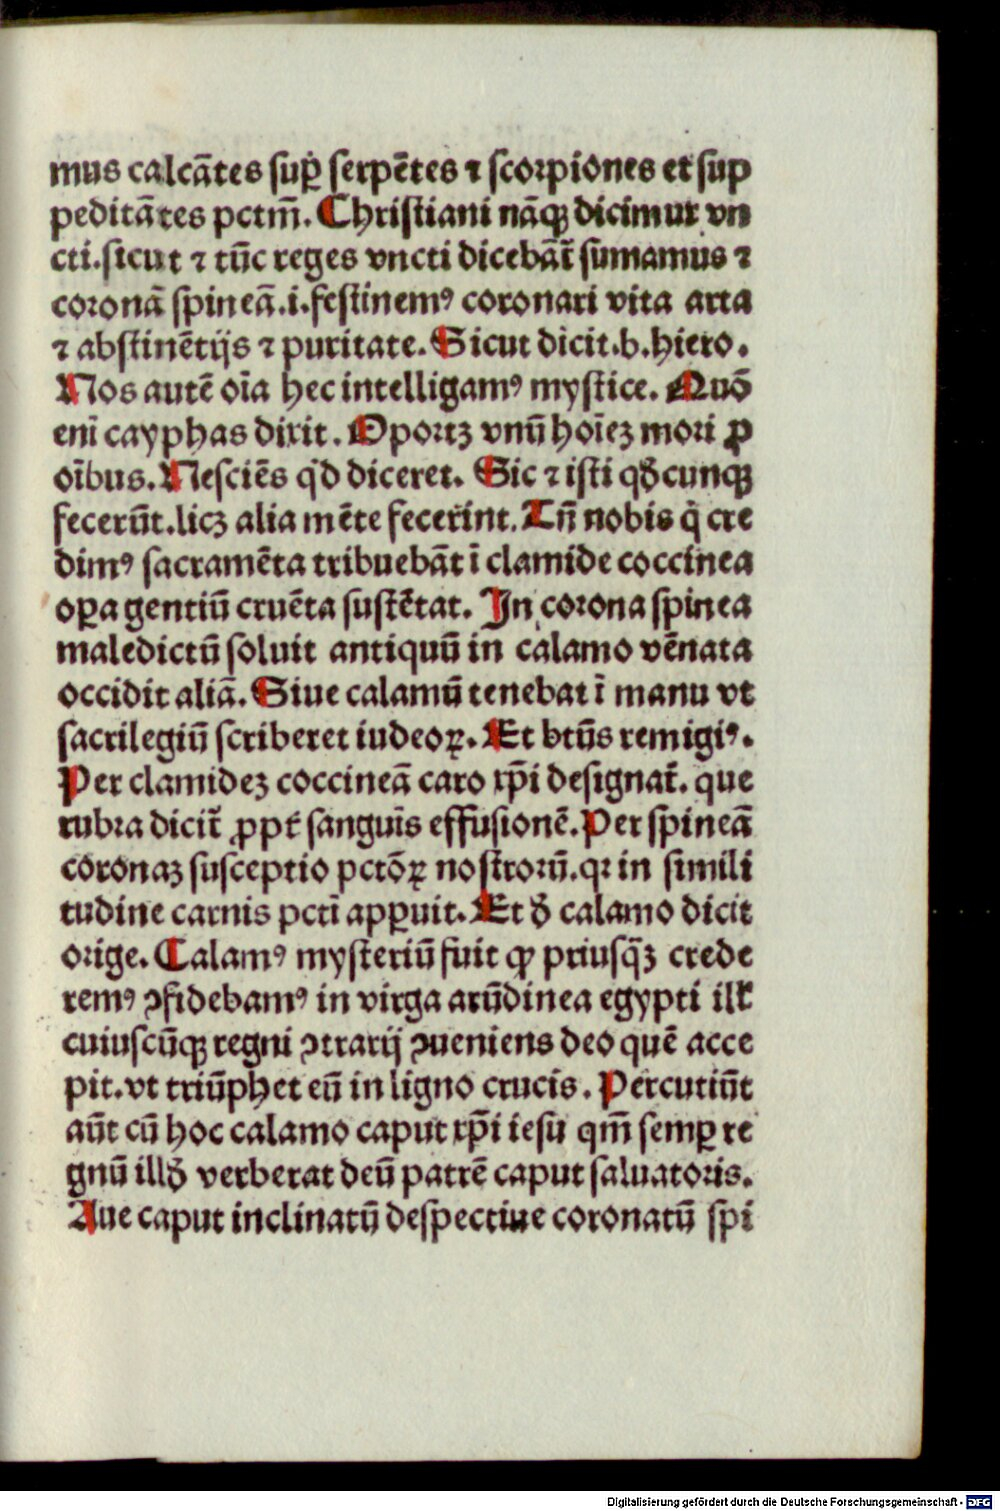 mus calcātes suꝑ serpētes ⁊ scorpiones et sup
peditātes pctm̄. Christiani nāqꝫ dicimur vn
cti.sicut ⁊ tūc reges vncti dicebāt᷑ sumamus ⁊
coronā spineā.i.festinemꝰ coronari vita arta
⁊ abstinētijs ⁊ puritate. Sicut dicit.b.hiero.
Nos autē oīa hec intelligamꝰ mystice. Quō
enī cayphas dixit. Oportꝫ vnū hoīeꝫ mori ꝓ
oībus. Nesciēs qͥd diceret. Sic ⁊ isti qd̄cunqꝫ
fecerūt.licꝫ alia mēte fecerint. Tn̄ nobis qͥ cre
dimꝰ sacramēta tribuebāt ī clamide coccinea
oꝑa gentiū cruēta sustētat. In corona spinea
maledictū soluit antiquū in calamo vēnata
occidit aliā. Siue calamū tenebat ī manu vt
sacrilegiū scriberet iudeoꝝ. Et btūs remigiꝰ.
Per clamideꝫ coccineā caro xp̄i designat᷑. que
rubra dicit᷑ ꝓpt̄ sanguīs effusionē. Per spineā
coronaꝫ susceptio pctōꝝ nostrorū.qꝛ in simili
tudine carnis pcti apꝑuit. Et d̄ calamo dicit
orige. Calamꝰ mysteriū fuit ꝙ priusq̄ꝫ crede
remꝰ ꝯfidebamꝰ in virga arūdinea egypti ill᷑
cuiuscūqꝫ regni ꝯtrarij ꝯueniens deo quē acce
pit.vt triūphet eū in ligno crucis. Percutiūt
aūt cū hoc calamo caput xp̄i iesu qm̄ semꝑ re
gnū illd̄ verberat deū patrē caput saluatoris.
Aue caput inclinatū despectiue coronatū spi
Digitalisierung gefördert durch die Deutsche Forschungsgemeinschaft - DFG